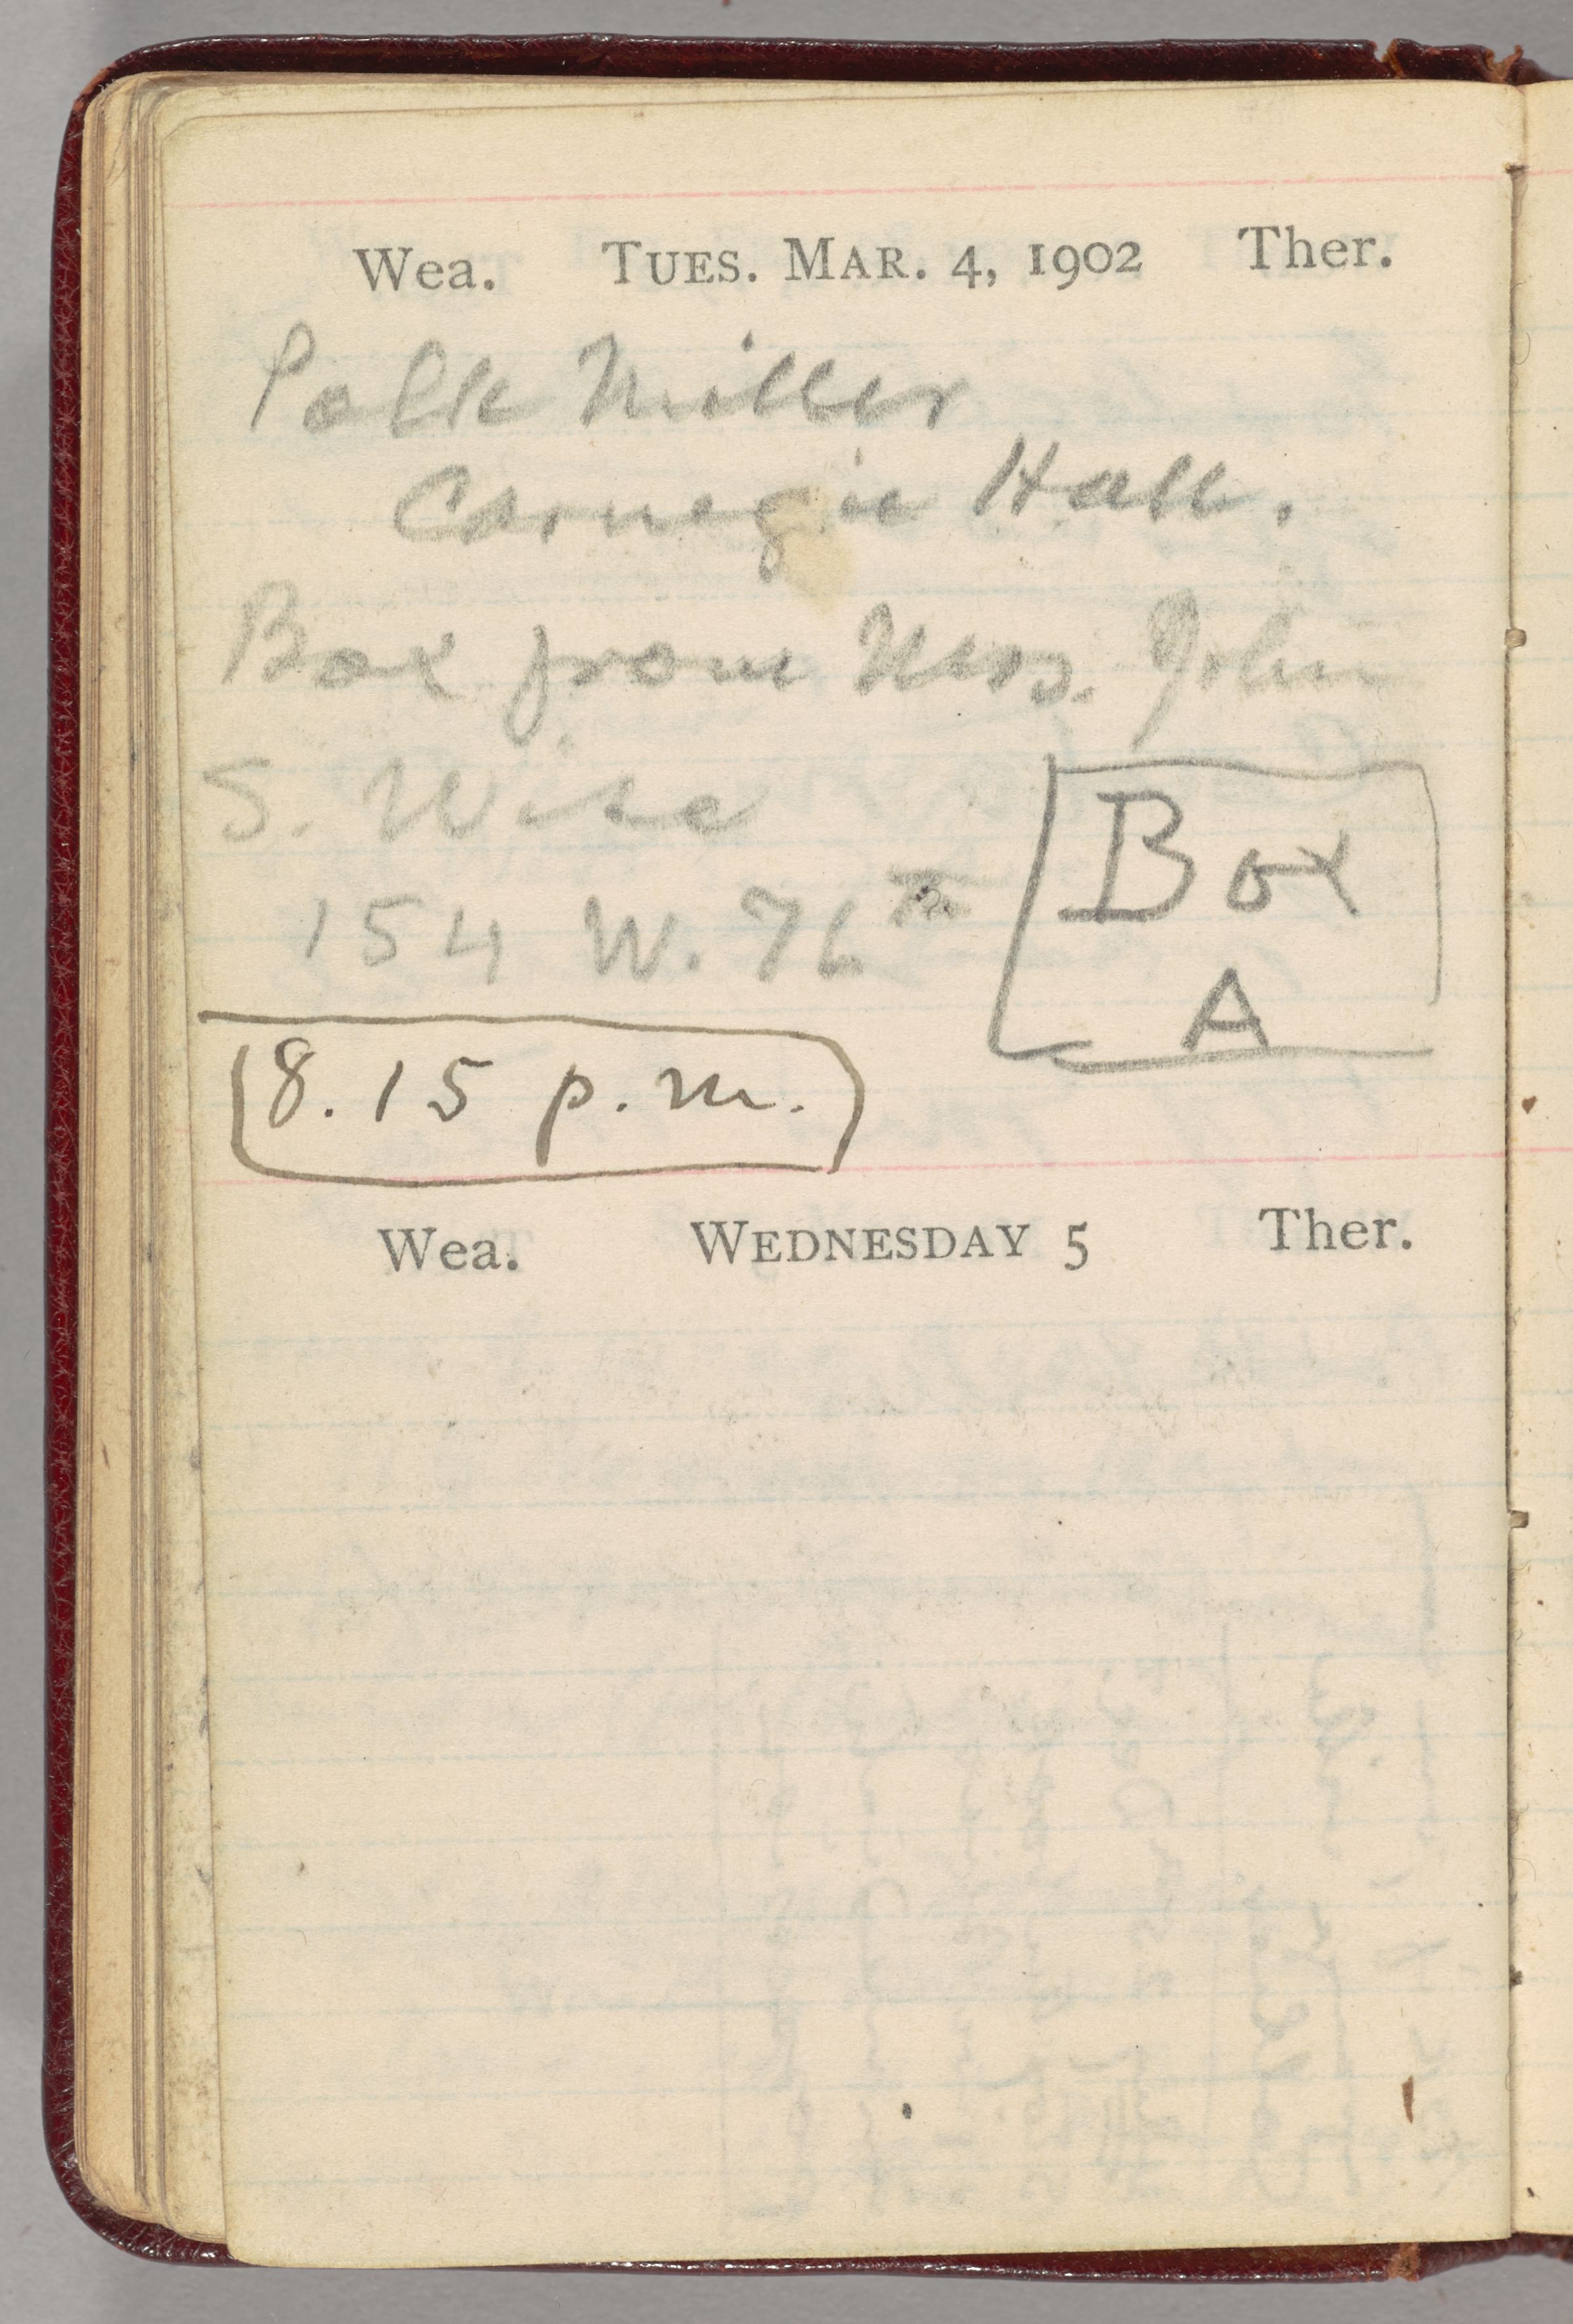 Wea. TUES. MAR. 4, 1902 Ther.
Polk Miller
Carnegie Hall.
Box from Mrs. John
S. Wise
154 W. 76th
Box
A
8.15 p.m.
Wea. WEDNESDAY 5 Ther.